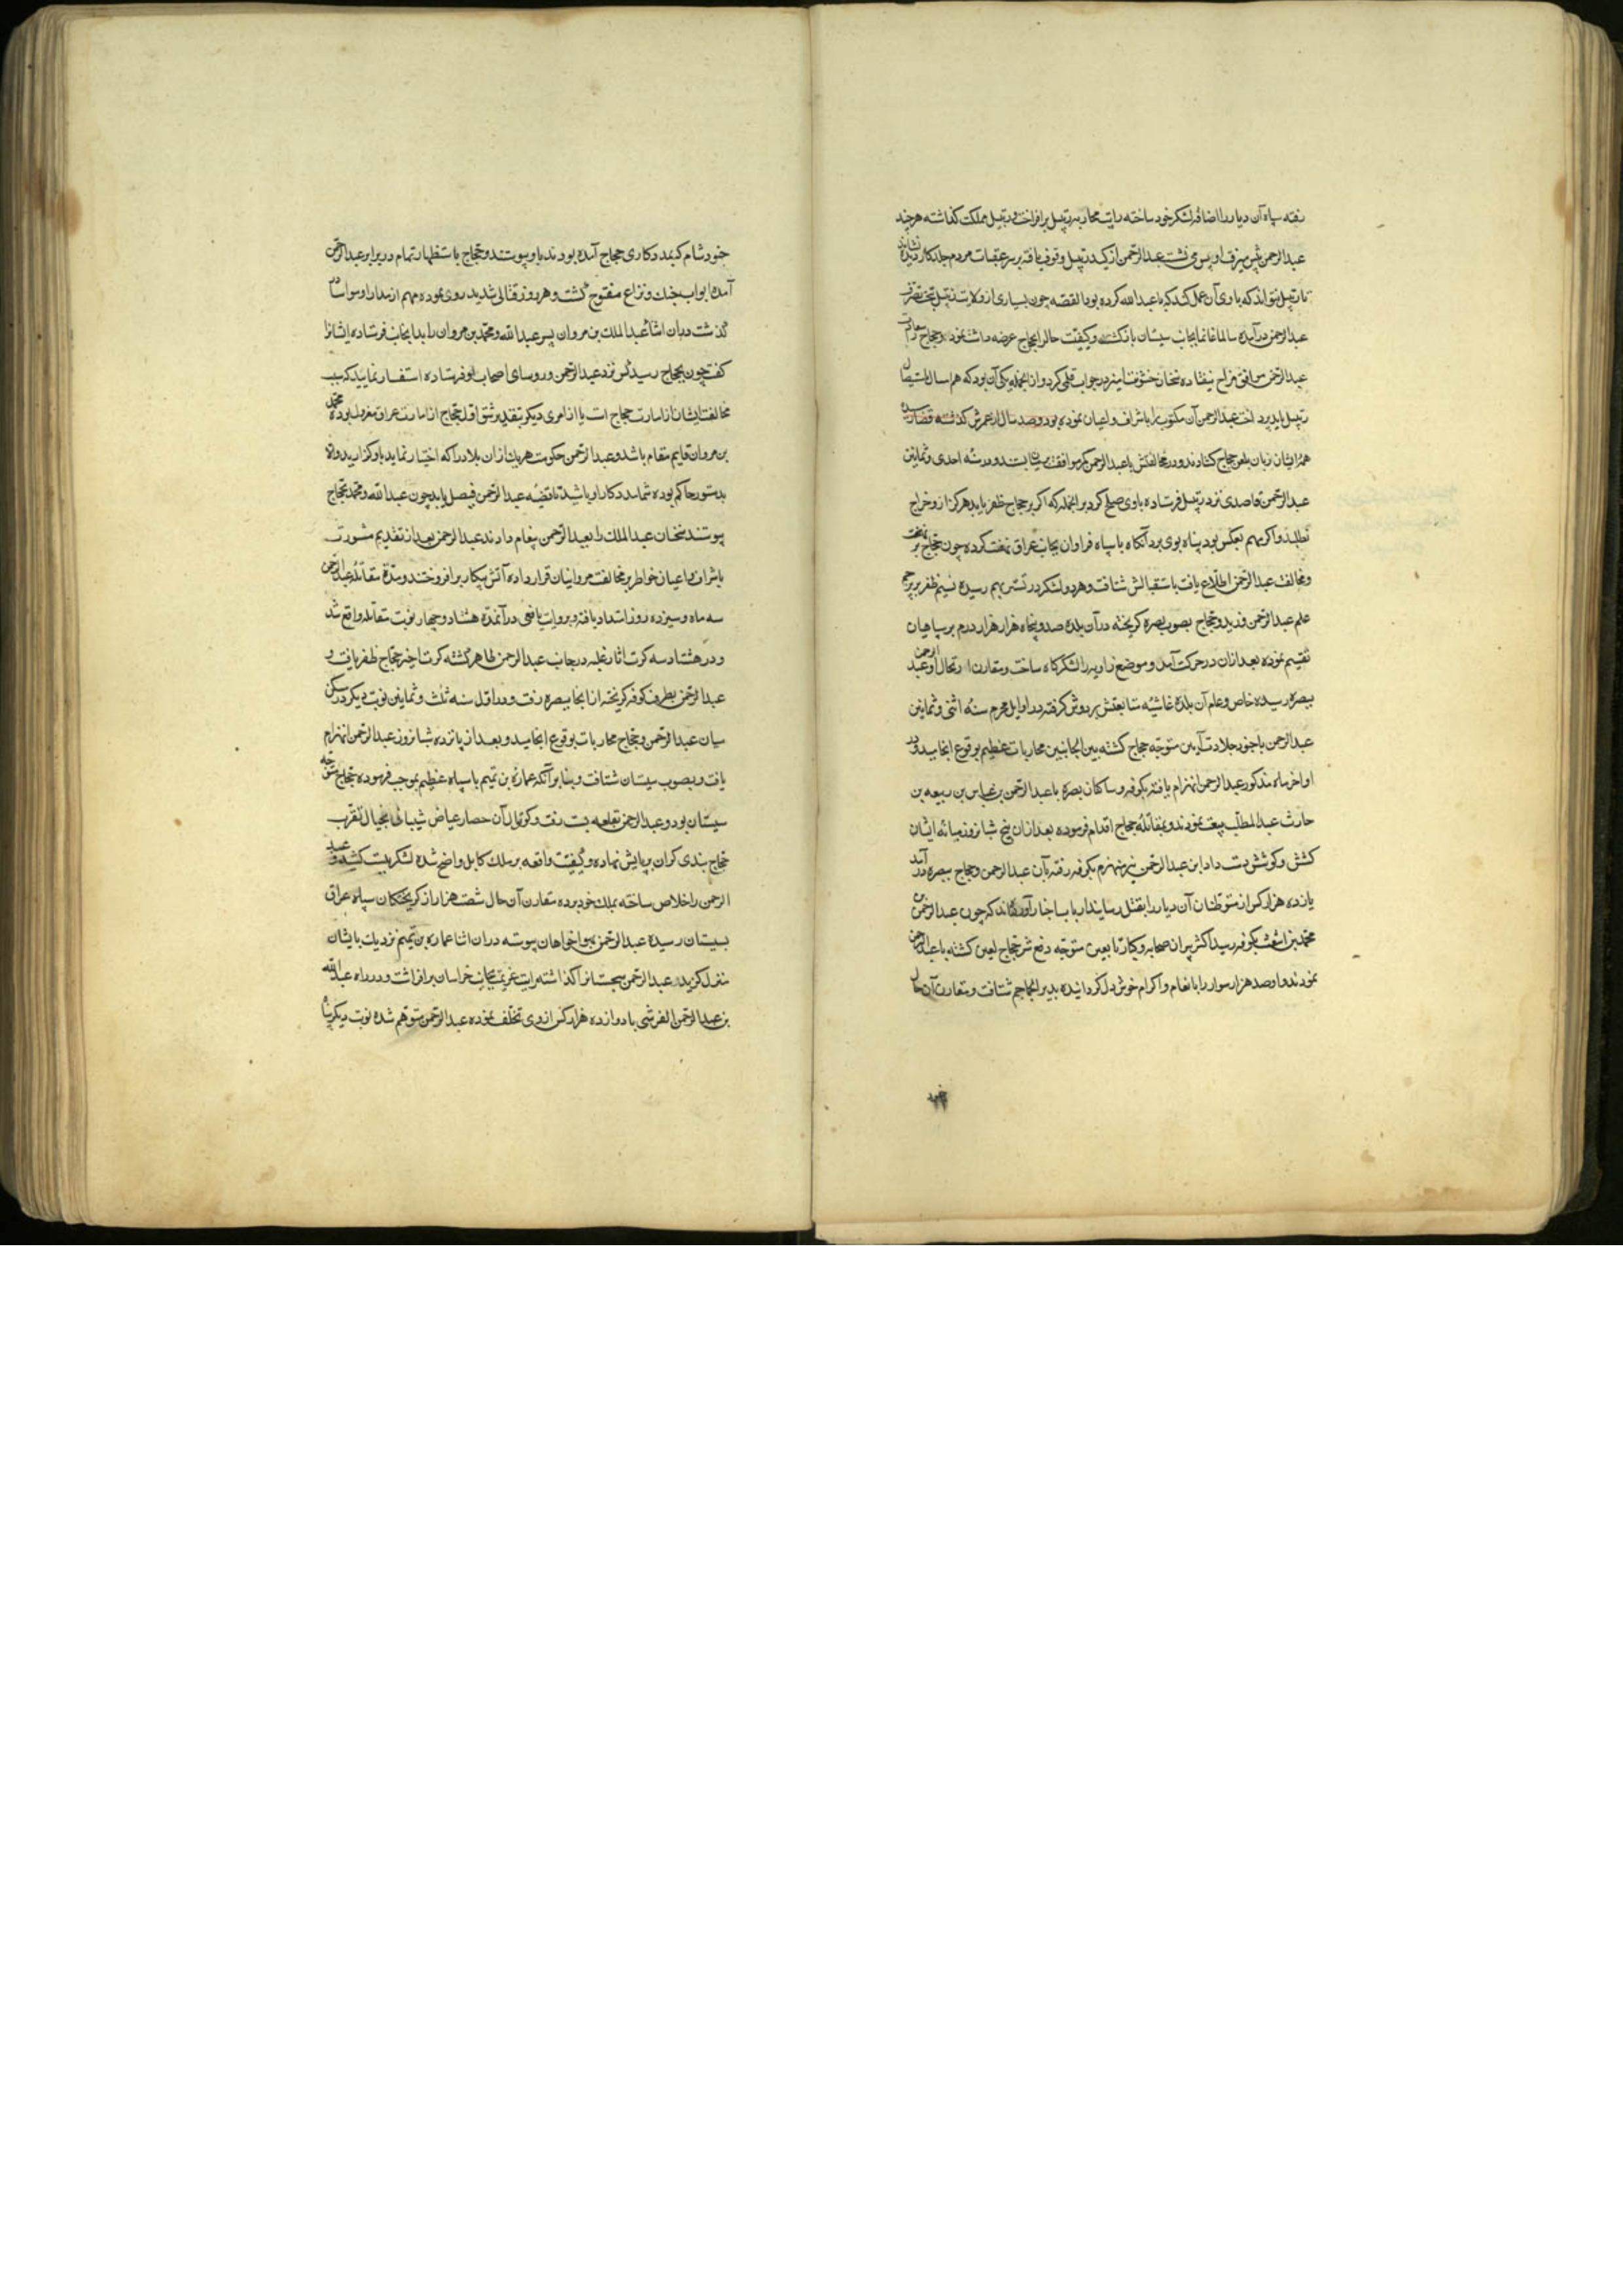 رفته سپاه آن دیار را اضافه لشکر خود ساخته رایت محاربه رتبیل برافراخت و رتبیل مملکت گذاشته هرچند
عبدالرحمن پیش میرفت او پس می نشست عبدالرحمن از کید رتبیل وقوف یافته بر سر عقبات مردم جلد کار دیده نشاند
تا رتبیل نتواند که با وی آن عمل کند که با عبدالله کرده بود القصه چون بسیاری از ولایت رتبیل تحت تصرف
عبدالرحمن درآمد سالما غانما بجانب سیستان بازگشت و کیفیت حال را بحجاج عرضه داشت نمود و حجاج را
عبدالرحمن موافق مزاج نیفتاده سخنان خشونت آمیز در جواب قلمی کرد و از انجمله یکی آن بود که هم امسال باستیصال
رتبیل باید پرداخت عبدالرحمن آن مکتوب را باشراف و اعیان نموده بود و صد سال از عمرش گذشته
همه ایشان زبان بلعن حجاج گشادند و در مخالفتش با عبدالرحمن کمر موافقت بر میان بستند و در سنه احدی و ثمانین
عبدالرحمن قاصدی نزد رتبیل فرستاده با وی صلح کرد بر انجمله که اگر بر حجاج ظفر یابد هرگز ازو خراج
نطلبد و اگر مهم بعکس بود پناه بوی برد آنگاه با سپاه فراوان بجانب عراق نهضت کرده چون حجاج بر نهضت
و مخالفت عبدالرحمن اطلاع یافت باستقبالش شتافت و هر دو لشکر در تستر بهم رسیده نسیم ظفر بر پرچم
علم عبدالرحمن وزید و حجاج بصوب بصره گریخته در آن بلده صد و پنجاه هزار هزار درم بر سپاهیان
تقسیم نموده بعد ازان در حرکت آمد و موضع زاویه را لشکرگاه ساخت و مقارن ارتحال او عبدالرحمن
ببصره رسیده خاص و عام آن بلده غاشیه متابعتش بر دوش گرفته در اوایل محرم سنه اثنی و ثمانین
عبدالرحمن با جنود جلادت آیین متوجه حجاج گشته بین الجانبین محاربات عظیم بوقوع انجامید و در
اواخر ماه مذکور عبدالرحمن انهزام یافته بکوفه و ساکنان بصره با عبدالرحمن بن عباس بن ربیعه بن
حارث عبدالمطلب بیعت نمودند و بمقاتله حجاج اقدام فرموده بعد ازان پنج شبانروز میانه ایشان
کشش و کوشش دست داد ابن عبدالرحمن نیز منهزم بکوفه رفته بآن عبدالرحمن و حجاج ببصره درآمد
یازده هزار کس از متوطنان آن دیار را بقتل رسانید ارباب اخبار آورده‌اند که چون عبدالرحمن بن
محمد بن اشعث بکوفه رسید اکثر پسران صحابه و کبار تابعین متوجه دفع شر حجاج لعین گشته با عبدالرحمن
نمودند و او صد هزار سوار را بانعام و اکرام خوش دل گردانیده بدیر الجماجم شتافت و مقارن آن حال
جنود شام که بمددکاری حجاج آمده بودند باو پیوستند و حجاج باستظهار تمام در برابر عبدالرحمن
آمده ابواب جنک و نزاع مفتوح گشت و هر روز قتالی شدید روی نموده مهم از مدارا و مواسا در
گذشت در ان اثنا عبدالملک بن مروان پسر عبدالله و محمد بن مروان را بدانجانب فرستاده ایشانرا
گفت چون بحجاج رسید کس نزد عبدالرحمن و روسای اصحاب او فرستاده استفسار نمایید که سبب
مخالفت ایشان از امارت حجاج است یا از امری دیگر بتقدیر شق اول حجاج از امارت عراق معزول بوده محمد
بن مروان قایم مقام باشد و عبدالرحمن حکومت هر یک ازان بلاد را که اختیار نماید باو گذارید والا
بدستور حاکم بوده شما مددکار او باشید تا قضیه عبدالرحمن فیصل یابد چون عبدالله و محمد بحجاج
پیوستند سخنان عبدالملک را بعبدالرحمن پیغام دادند عبدالرحمن بعد از تقدیم مشورت
باشراف و اعیان خواطر بر مخالفت مروانیان قرار داده آتش پیکار برافروختند و مدة مقاتله عبدالرحمن
سه ماه و سیزده روز امتداد یافته و بروایت یافعی در آنمدة هشتاد و چهار نوبت مقاتله واقع شد
و در هشتاد و سه کرت آثار غلبه در جانب عبدالرحمن ظاهر گشته کرت اخیر حجاج ظفر یافت و
عبدالرحمن بطرف کوفه گریخته از انجا ببصره رفت و در اول سنه ثلث و ثمانین نوبت دیگر در مسکن
میان عبدالرحمن و حجاج محاربات بوقوع انجامید و بعد از پانزده شبانروز عبدالرحمن انهزام
یافت و بصوب سیستان شتافت و بنا بر آنکه عماره بن تمیم با سپاه عظیم بموجب فرموده حجاج متوجه
سیستان بود و عبدالرحمن بقلعه بست رفت و کوتوال آن حصار عیاض شیبانی بخیال تقرب
حجاج بندی گران بر پایش نهاده و کیفیت واقعه بر ملک کابل واضح شده لشکر ببست کشید و عبد
الرحمن را خلاص ساخته بملک خود برده مقارن آن حال شصت هزار از گریختگان سپاه عراق
بسیستان رسیده عبدالرحمن بهواخواهان پیوسته در ان اثنا عماره بن تمیم نزدیک بایشان
منزل گزید عبدالرحمن سجستانرا گذاشته رایت عزیمت بجانب خراسان برافراشت و در راه عبدالله
بن عبدالرحمن القرشی با دوازده هزار کس از وی تخلف نموده عبدالرحمن متوهم شده نوبت دیگر پناه